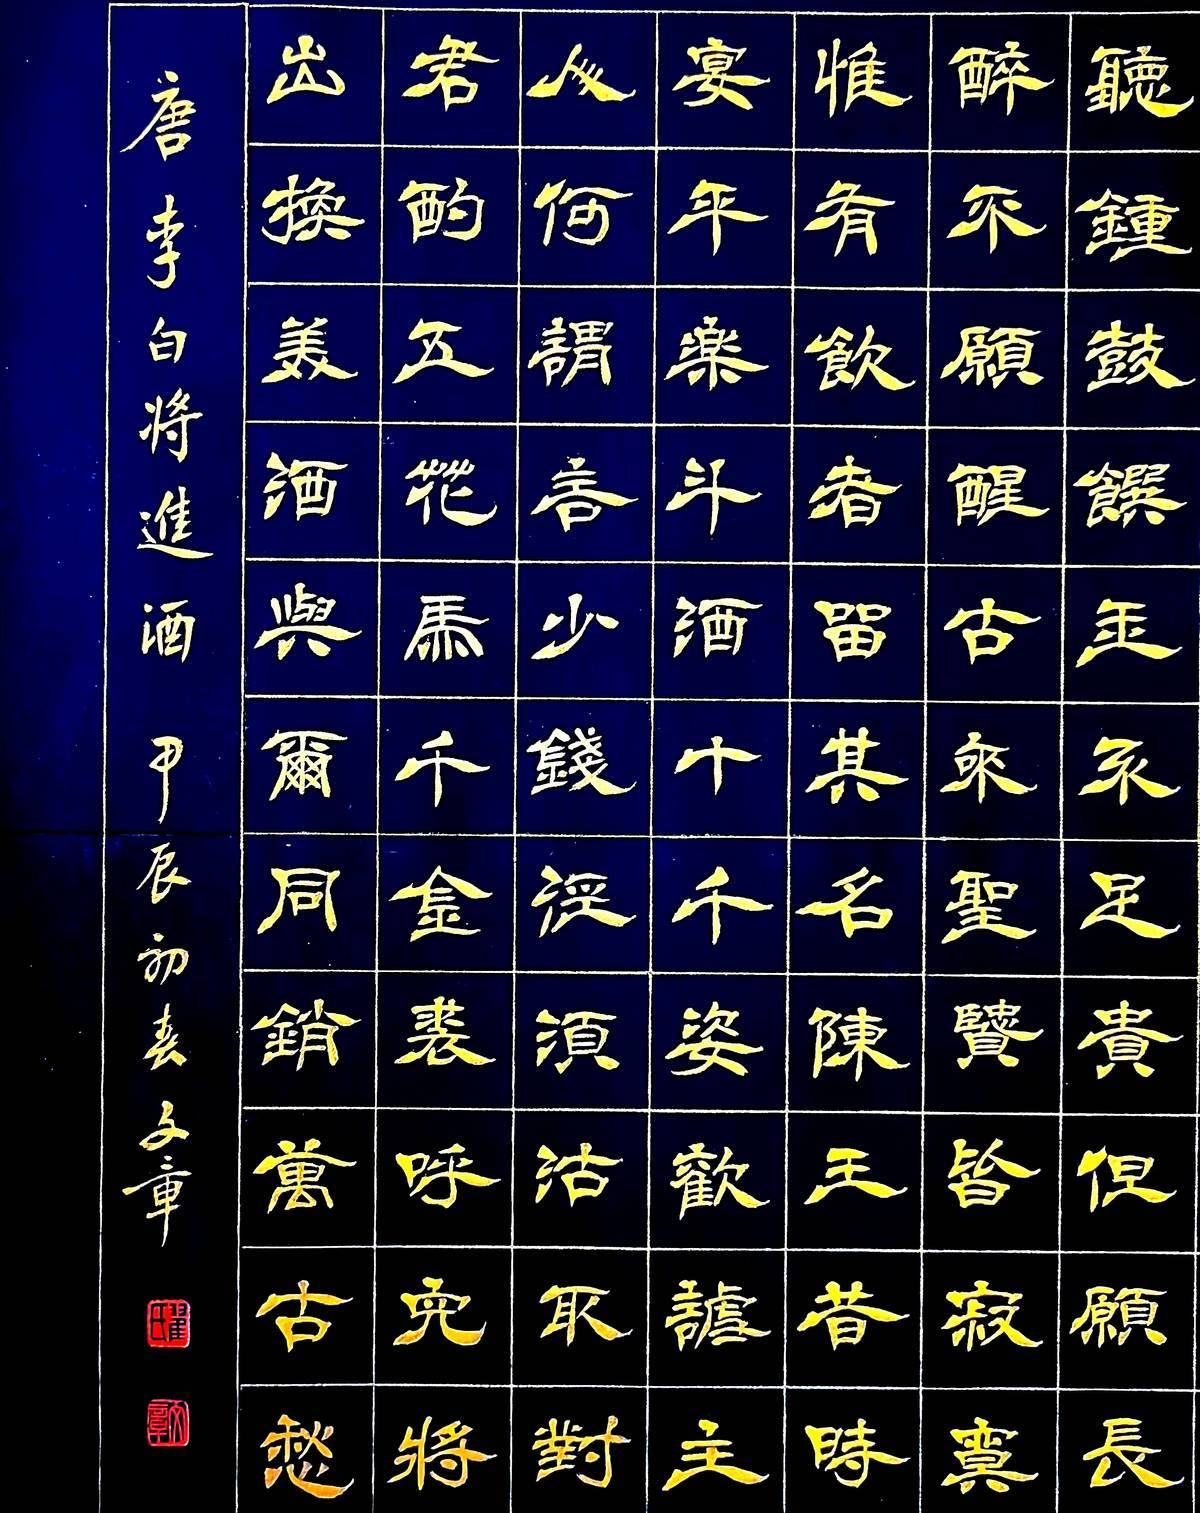 聽鍾鼓饌玉不足貴但願長
醉不願醒古來聖賢皆寂寞
惟有飲者留其名陳王昔時
宴平樂斗酒十千姿歡謔主
人何謂言少錢徑須沽取對
君酌五花馬千金裘呼兒將
出換美酒與爾同銷萬古愁
唐李白將進酒 甲辰初春文章
翟氏
文章